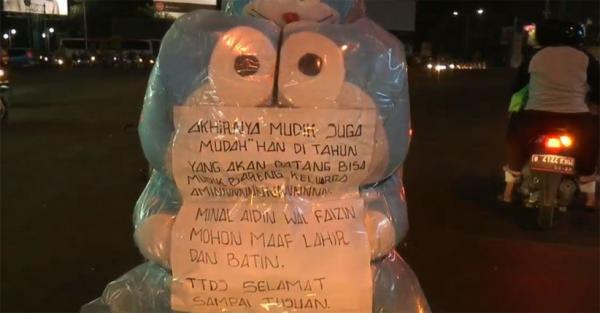 AKHIRNYA MUDIK JUGA
MUDAH"HAN DI TAHUN
YANG AKAN DATANG BISA
MUDIK BARENG KELUARGA
MINAL AIDIN WAL FAIZIN
MOHON MAAF LAHIR
DAN BATIN.
TTDJ SELAMAT
SAMPAI TUJUAN.